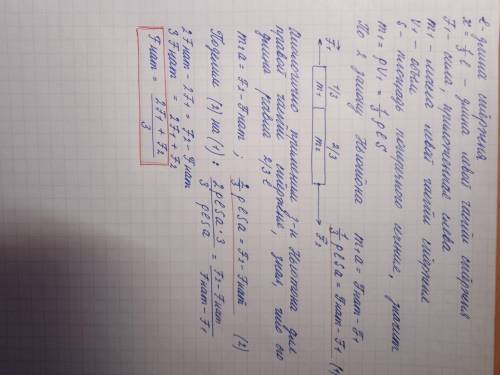 l - длина стержня
x = 1/3 l - длина левой части стержня
F₁ - сила, приложенная слева
m₁ - масса левой части стержня
V₁ - объем
S - площадь поперечного сечения, значит
m₁ = ρV₁ = 1/3 ρlS
По 2 закону Ньютона m₁a = Fнат - F₁
1/3 ρlSa = Fнат - F₁ (1)
F₁ 1/3 2/3 F₂
m₁ m₂
Аналогично применим з-н Ньютона для
правой части стержня, зная, что его
длина равна 2/3 l
m₂a = F₂ - Fнат ; 2/3 ρlSa = F₂ - Fнат (2)
Поделим (2) на (1): 2ρlSa·3 / 3 ρlSa = F₂ - Fнат / Fнат - F₁
2Fнат - 2F₁ = F₂ - Fнат
3Fнат = 2F₁ + F₂
Fнат = 2F₁ + F₂ / 3